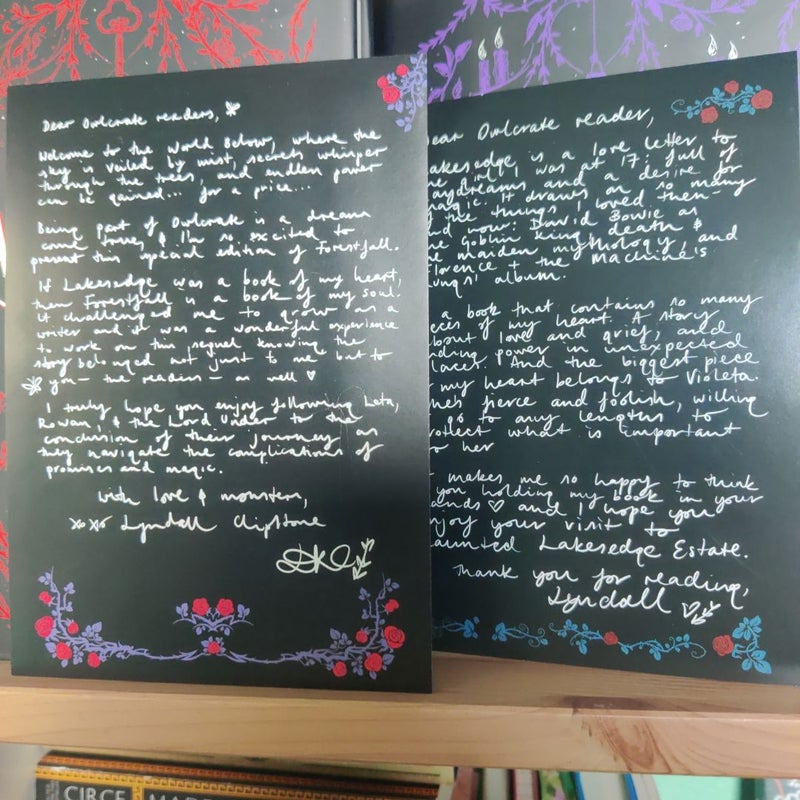 Dear Owlcrate readers,
Welcome to the World Below, where the
sky is veiled by mist, secrets whisper
through the trees, and endless power
can be gained... for a price...
Being part of Owlcrate is a dream
come true, & I'm so excited to
present this special edition of Forestfall.
If Lakesedge was a book of my heart,
then Forestfall is a book of my soul.
It challenged me to grow as a
writer and it was a wonderful experience
to work on this sequel knowing the
story belonged not just to me but to
you - the readers - as well ♡
I truly hope you enjoy following Leta,
Rowan, & the Lord Under to the
conclusion of their journey as
they navigate the complications of
promises and magic.
With love & monsters,
xoxo Lyndall Clipstone
ear Owlcrate reader,
akesedge is a love letter to
e girl I was at 17: full of
aydreams and a desire for
agic. It draws on so many
f the things I loved then -
nd now: David Bowie as
e Goblin King, death &
e maiden mythology, and
lorence & the Machine's
ungs' album.
a book that contains so many
eces of my heart. A story
bout love and grief, and
nding power in unexpected
laces. And the biggest piece
my heart belongs to Violeta.
hes fierce and foolish, willing
go to any lengths to
rotect what is important
o her
makes me so happy to think
you holding my book in your
ands ♡ and I hope you
njoy your visit to
aunted Lakesedge Estate.
Thank you for reading,
Lyndall
CIRCE